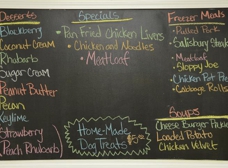 Desserts
Blackberry
Coconut Cream
Rhubarb
Sugar Cream
Peanut Butter
Pecan
Keylime
Strawberry
Peach Rhubarb
Specials
• Pan Fried Chicken Livers
• Chicken and Noodles
• Meatloaf
Home-Made
Dog Treats
Freezer Meals
• Pulled Pork
• Salisbury Steak
• Meatloaf
• Sloppy Joe
• Chicken Pot Pie
• Cabbage Rolls
Soups
Cheese Burger Pickle
Loaded Potato
Chicken Velvet